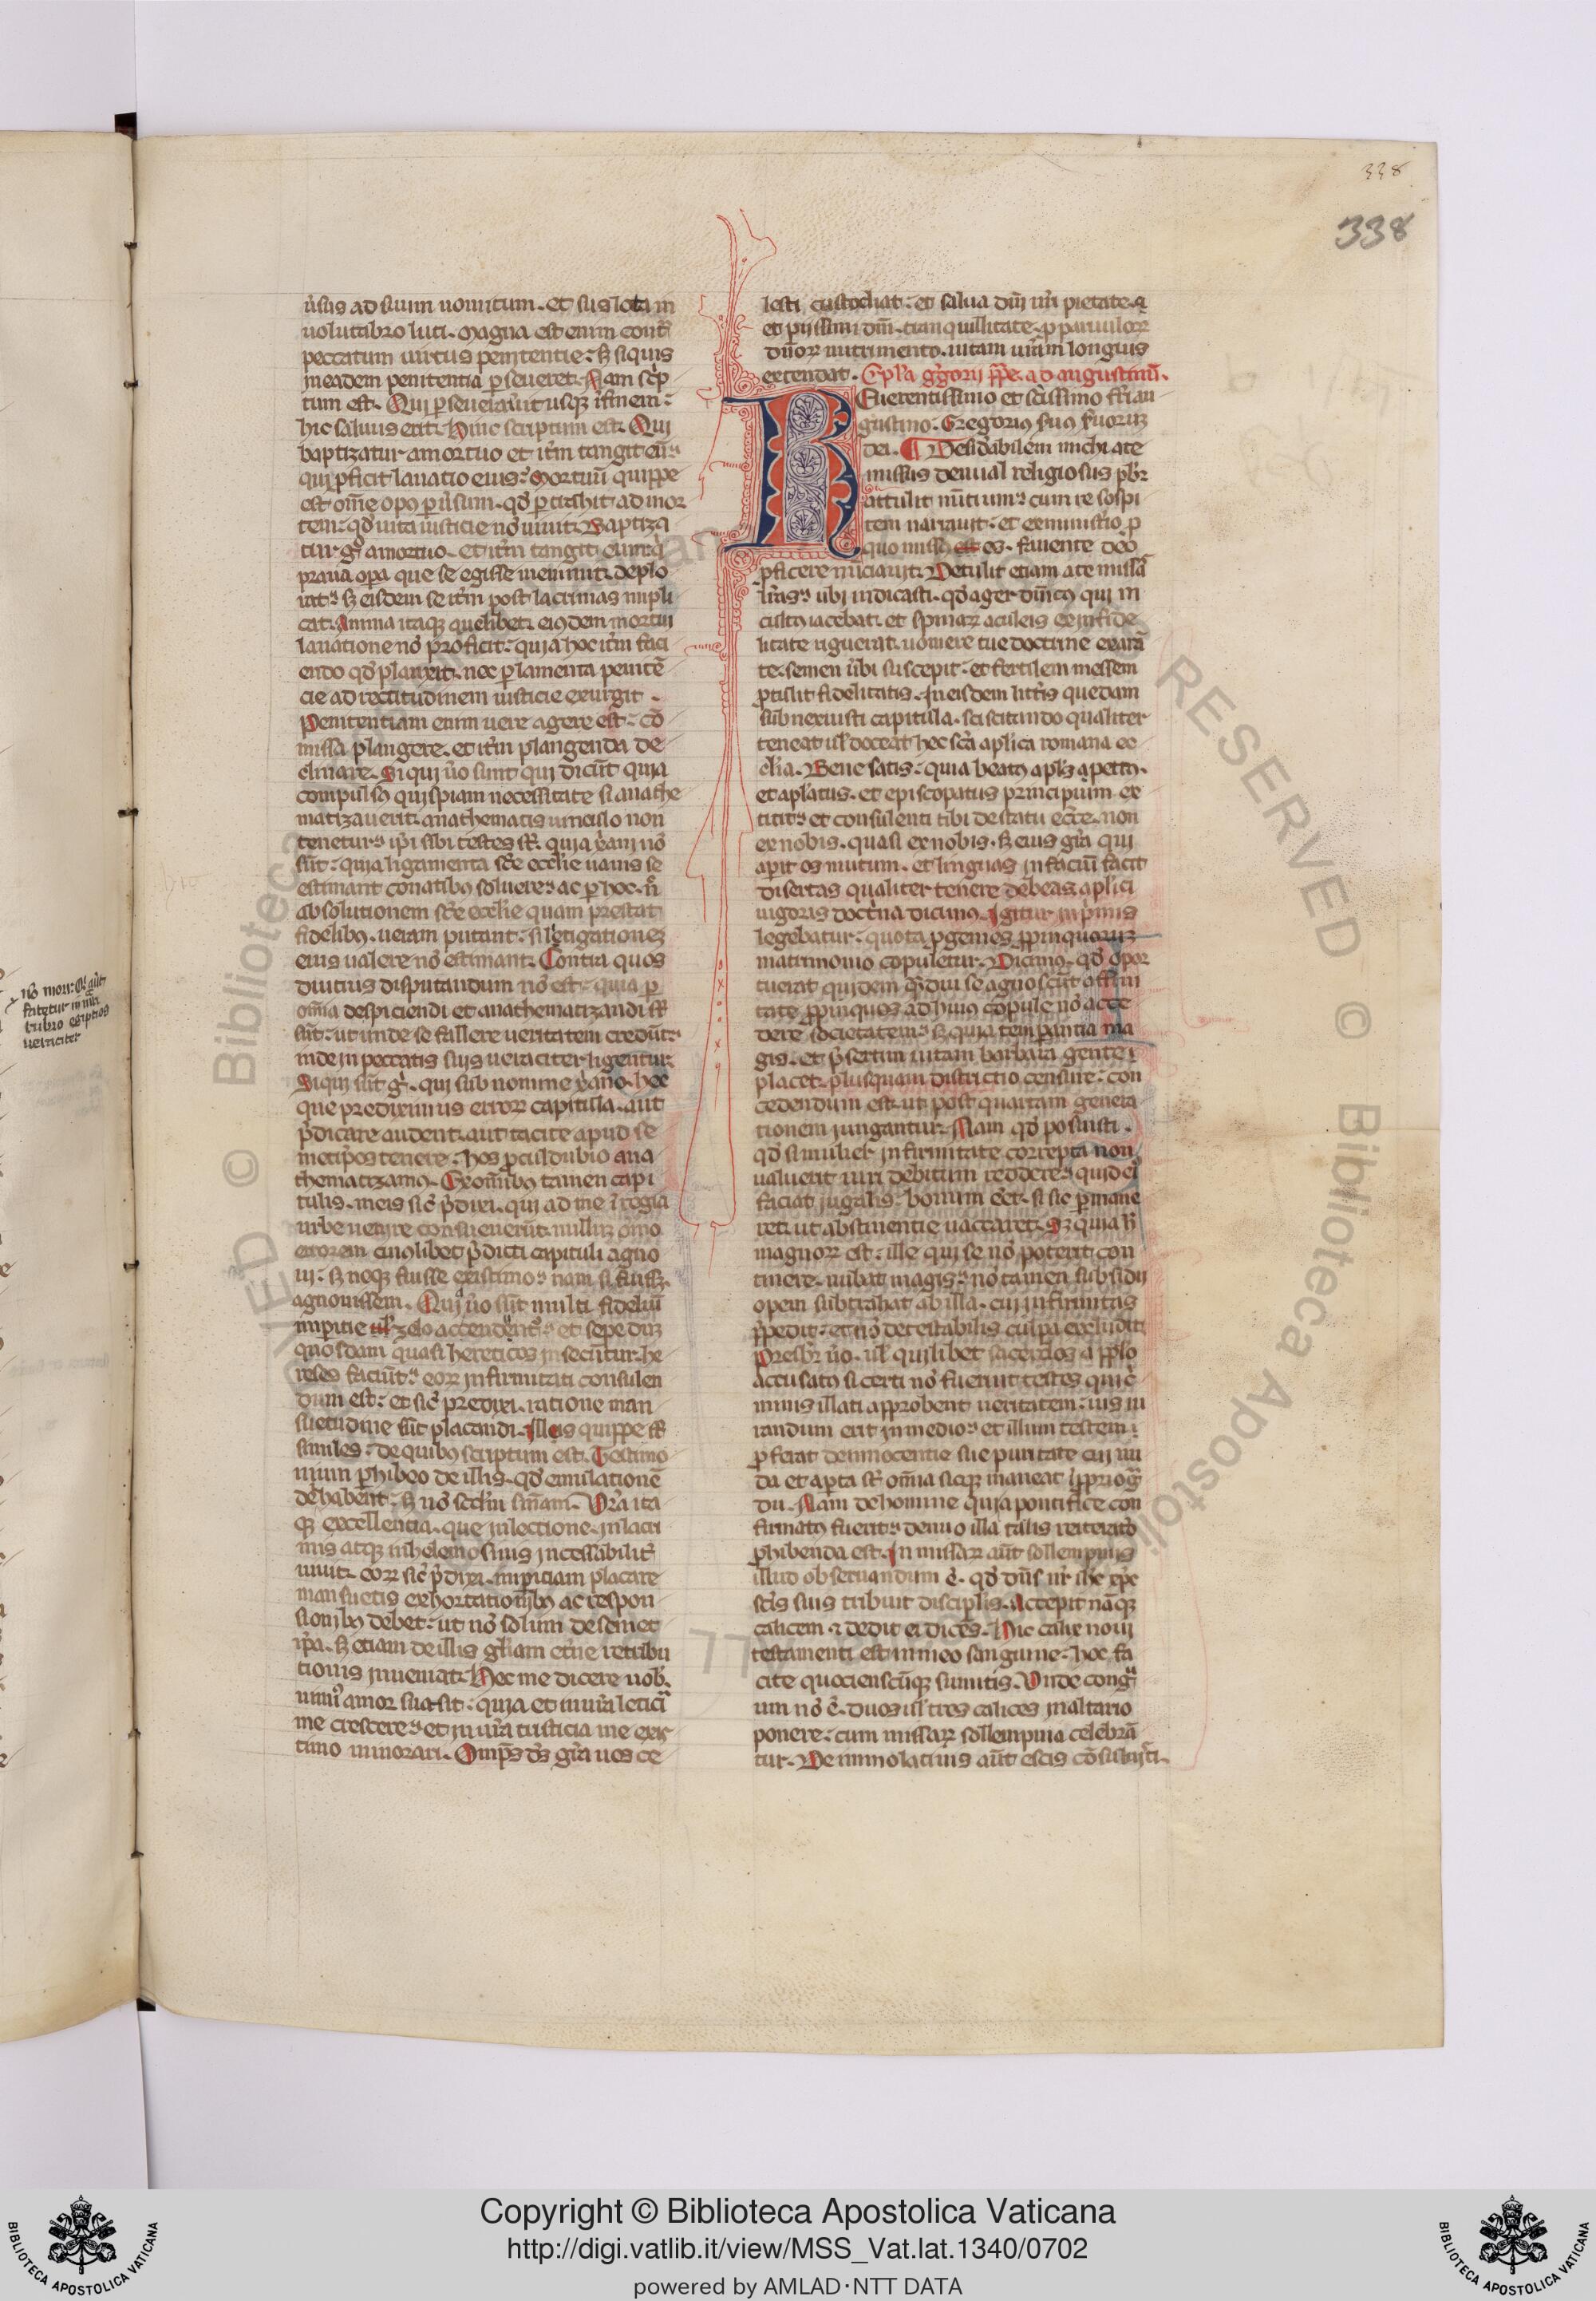 338
338
u͛sus ad suum uomitum. et sus lota in
uolutabro luti. Magna est enim cont͛
peccatum uirtus penitentie: s; siquis
in eadem penitentia p̱seueret. Nam sc͛p
tum est. Qui p̱seuerau͛it usq; ī finem:
hic saluus erit. Hinc scriptum est. Qui
baptizatur a mortuo et it͛m tangit eū:
qui p̱ficit lauatio eius: Mortuū quippe
est om̄e opꝰ p̱u͛sum. qd̄ p̱trahit ad mor
tem: qd̄ uita iusticie nō uiuit. Baptiza
tur gͦ a mortuo. et it͛m tangit eum: qͥ
praua oꝑa que se egisse meminit deplo
rat: s; eisdem se it͛m post lacrimas impli
cat. Anima itaq; quelibet eiꝰdem mortui
lauatione nō proficit: quia hoc it͛m faci
endo qd̄ planxit. nec p̱ lamenta penitē
cie ad rectitudinem iusticie exurgit.
Penitentiam enim uere agere est: cō
missa plangere. et it͛m plangenda de
clinare. Si qui u͛o sunt qui dicūt quia
compulsꝰ quispiam necessitate si anathe
matizauerit. anathematis uinculo non
tenetur: ip̄i sibi testes st̄. quia xp̄iani nō
sūt: quia ligamenta sc̄e eccl̄ie uanis se
estimant conatibꝰ soluere: ac p̱ hoc. n͛
absolutionem sc̄e eccl̄ie quam prestat
fidelibꝰ. ueram putant: si letigationez
eius ualere nō estimant. Contra quos
diutius disputandum nō est: quia p̱
om̄ia despiciendi et anathematizandi st̄
sūt: ut unde se fallere ueritatem credūt:
inde in peccatis suis ueraciter ligentur.
Siqui sūt gͦ. qui sub nomine xp̄iano. hec
que prediximus erroꝝ capitula. aut
p̄dicare audent. aut tacite apud se
metipos tenere: hos p̱culdubio ana
thematizamꝰ. Ex om̄ibꝰ tamen capi
tulis. meis sic̄ p̄dixi. qui ad me ī regia
urbe uenire consueuerūt. nulluz om̄o
errorem cuiꝰlibet p̄dicti capituli agno
ui: s; neq; fuisse existimo: nam si fuiss;.
agnouissem. Quia u͛o sūt multi fideliū
imperitie zelo accendūt͛: et sepe duz
quosdam quasi hereticos insecūtur. he
reses faciūt: eoꝝ infirmitati consulen
dum est: et sic̄ predixi. ratione man
suetudine sūt placandi. Illis quippe st̄
similes: de quibꝰ scriptum est. Testimo
nium p̱hibeo de illis. qd̄ emulationē
dei habent: s; nō secd̄m sc̄iam. Vr̄a ita
q; excellentia. que in lectione. in lacri
mis atq; in helemosinis incessabilit͛
uiuit. eoꝝ sic̄ p̄dixi. imp̱itiam placare
mansuetis exhortationibꝰ ac respon
sionibꝰ debet: ut nō solum de semet
ip̄a. s; etiam de illis gl̄iam et͛ne retribu
tionis inueniat. Hoc me dicere uob̄.
nimiꝰ amor suasit: quia et in ur̄a leticia
me crescere: et in ur̄a tusticia me exis
timo minorari. Omnip̄s d̄s gr̄a uos ce
lesti custodiat: et salua dn̄i ur̄i pietate. ⁊
et piissimi dn̄i. tranquillitate. p̱ paruuloꝝ
dn̄oꝝ nutrimento. uitam ur̄am longius
extendat. Ep̄l'a g͛gorii pp̄e. ad augustinū.
Reuerentissimo et sc̄issimo fr̄i au
gustino. Gregoriꝰ suꝰ s̄uoruz
dei. ¶ Desid͛abilem michi a te
missus denual religiosus pb͛r
attulit nūtium: cum re sospi
tem narrauit: et ex ministerio p̱
quo missꝰ es. fauente deo
p̱ficere nūciauit. Detulit etiam a te missā
lr̄as: ubi indicasti. qd̄ ager dn̄icꝰ qui in
cultꝰ iacebat. et spinaꝝ aculeis ex infide
litate riguerat. uomere tue doctrine exarā
te. semen u͛bi suscepit: et fertilem messem
p̱tulit fidelitatis. In eisdem litt͛is quedam
subnexuisti capitula. sciscitando qualiter
teneat ul̄ doceat hec sc̄a ap̄lica romana ec
cl̄ia. Bene satis: quia beatꝰ ap̄l's a petrꝰ.
et ap̄l'atus. et episcopatus principium ex
titit: et consulenti tibi de statu ecc̄e. non
ex nobis. quasi ex nobis. s; eius gr̄a qui
ap̱it os mutum. et linguas infaciū facit
disertas qualiter tenere debeas ap̄lici
uigoris doct͛na dicimꝰ. Igitur in p͛mis
legebatur: quota p̱genies p̱pinquoruz
matrimonio copuletur. Dicimꝰ. qd̄ opor
tuerat quidem q͛mdiu se agnoscūt affini
tate p̱pinquos ad huiꝰ copule nō acce
dere societatem: s; quia temp̱antia ma
gis. et p̄sertim in tam barbara gente
placet. plusquam districtio censure: con
cedendum est. ut post quartam genera
tionem iungantur. Nam qd̄ posuisti.
qd̄ si mulier infirmitate correpta non
ualuerit uiri debitum reddere: quid ei
faciat iugalis: bonum eēt. si sic p̱mane
ret. ut abstinentie uaccaret. S; quia h̄
magnoꝝ est: ille qui se nō poterit con
tinere. nubat magis: nō tamen subsidii
opem subtrahat ab illa. cui infirmitas
p̄pedit: et nō detestabilis culpa excludit.
Presb͛r u͛o. ul̄ quilibet sacerdos a pp̄lo
accusatꝰ si certi nō fuerint testes qui c͛
minis illati approbent ueritatem: ius iu
randum erit in medio: et illum testem
p̱ferat de innocentie sue puritate cui nu
da et ap̱ta st̄ om̄ia sicq; maneat ī p̱prio g͛
du. Nam de homine qui a pontifice con
firmatꝰ fuerit: denuo illa talis reiteratio
p̱hibenda est. In missaꝝ aūt sollempniis
illud obseruandum ē. qd̄ dn̄s ur̄ ih̄c xp̄c
sc̄is suis tribuit discip̄lis. Accepit nāq;
calicem. ⁊ dedit ei dicēs. Hic calix noui
testamenti est in meo sanguine: hoc fa
cite quociēscūq; sumitis. Vnde congͣ
um nō ē. duos ul̄ tres calices in altario
ponere: cum missaꝝ sollempnia celebrā
tur. De immolatiuis aūt escis cōsuluisti.
Copyright © Biblioteca Apostolica Vaticana
http://digi.vatlib.it/view/MSS_Vat.lat.1340/0702
powered by AMLAD·NTT DATA
BIBLIOTECA APOSTOLICA VATICANA
BIBLIOTECA APOSTOLICA VATICANA